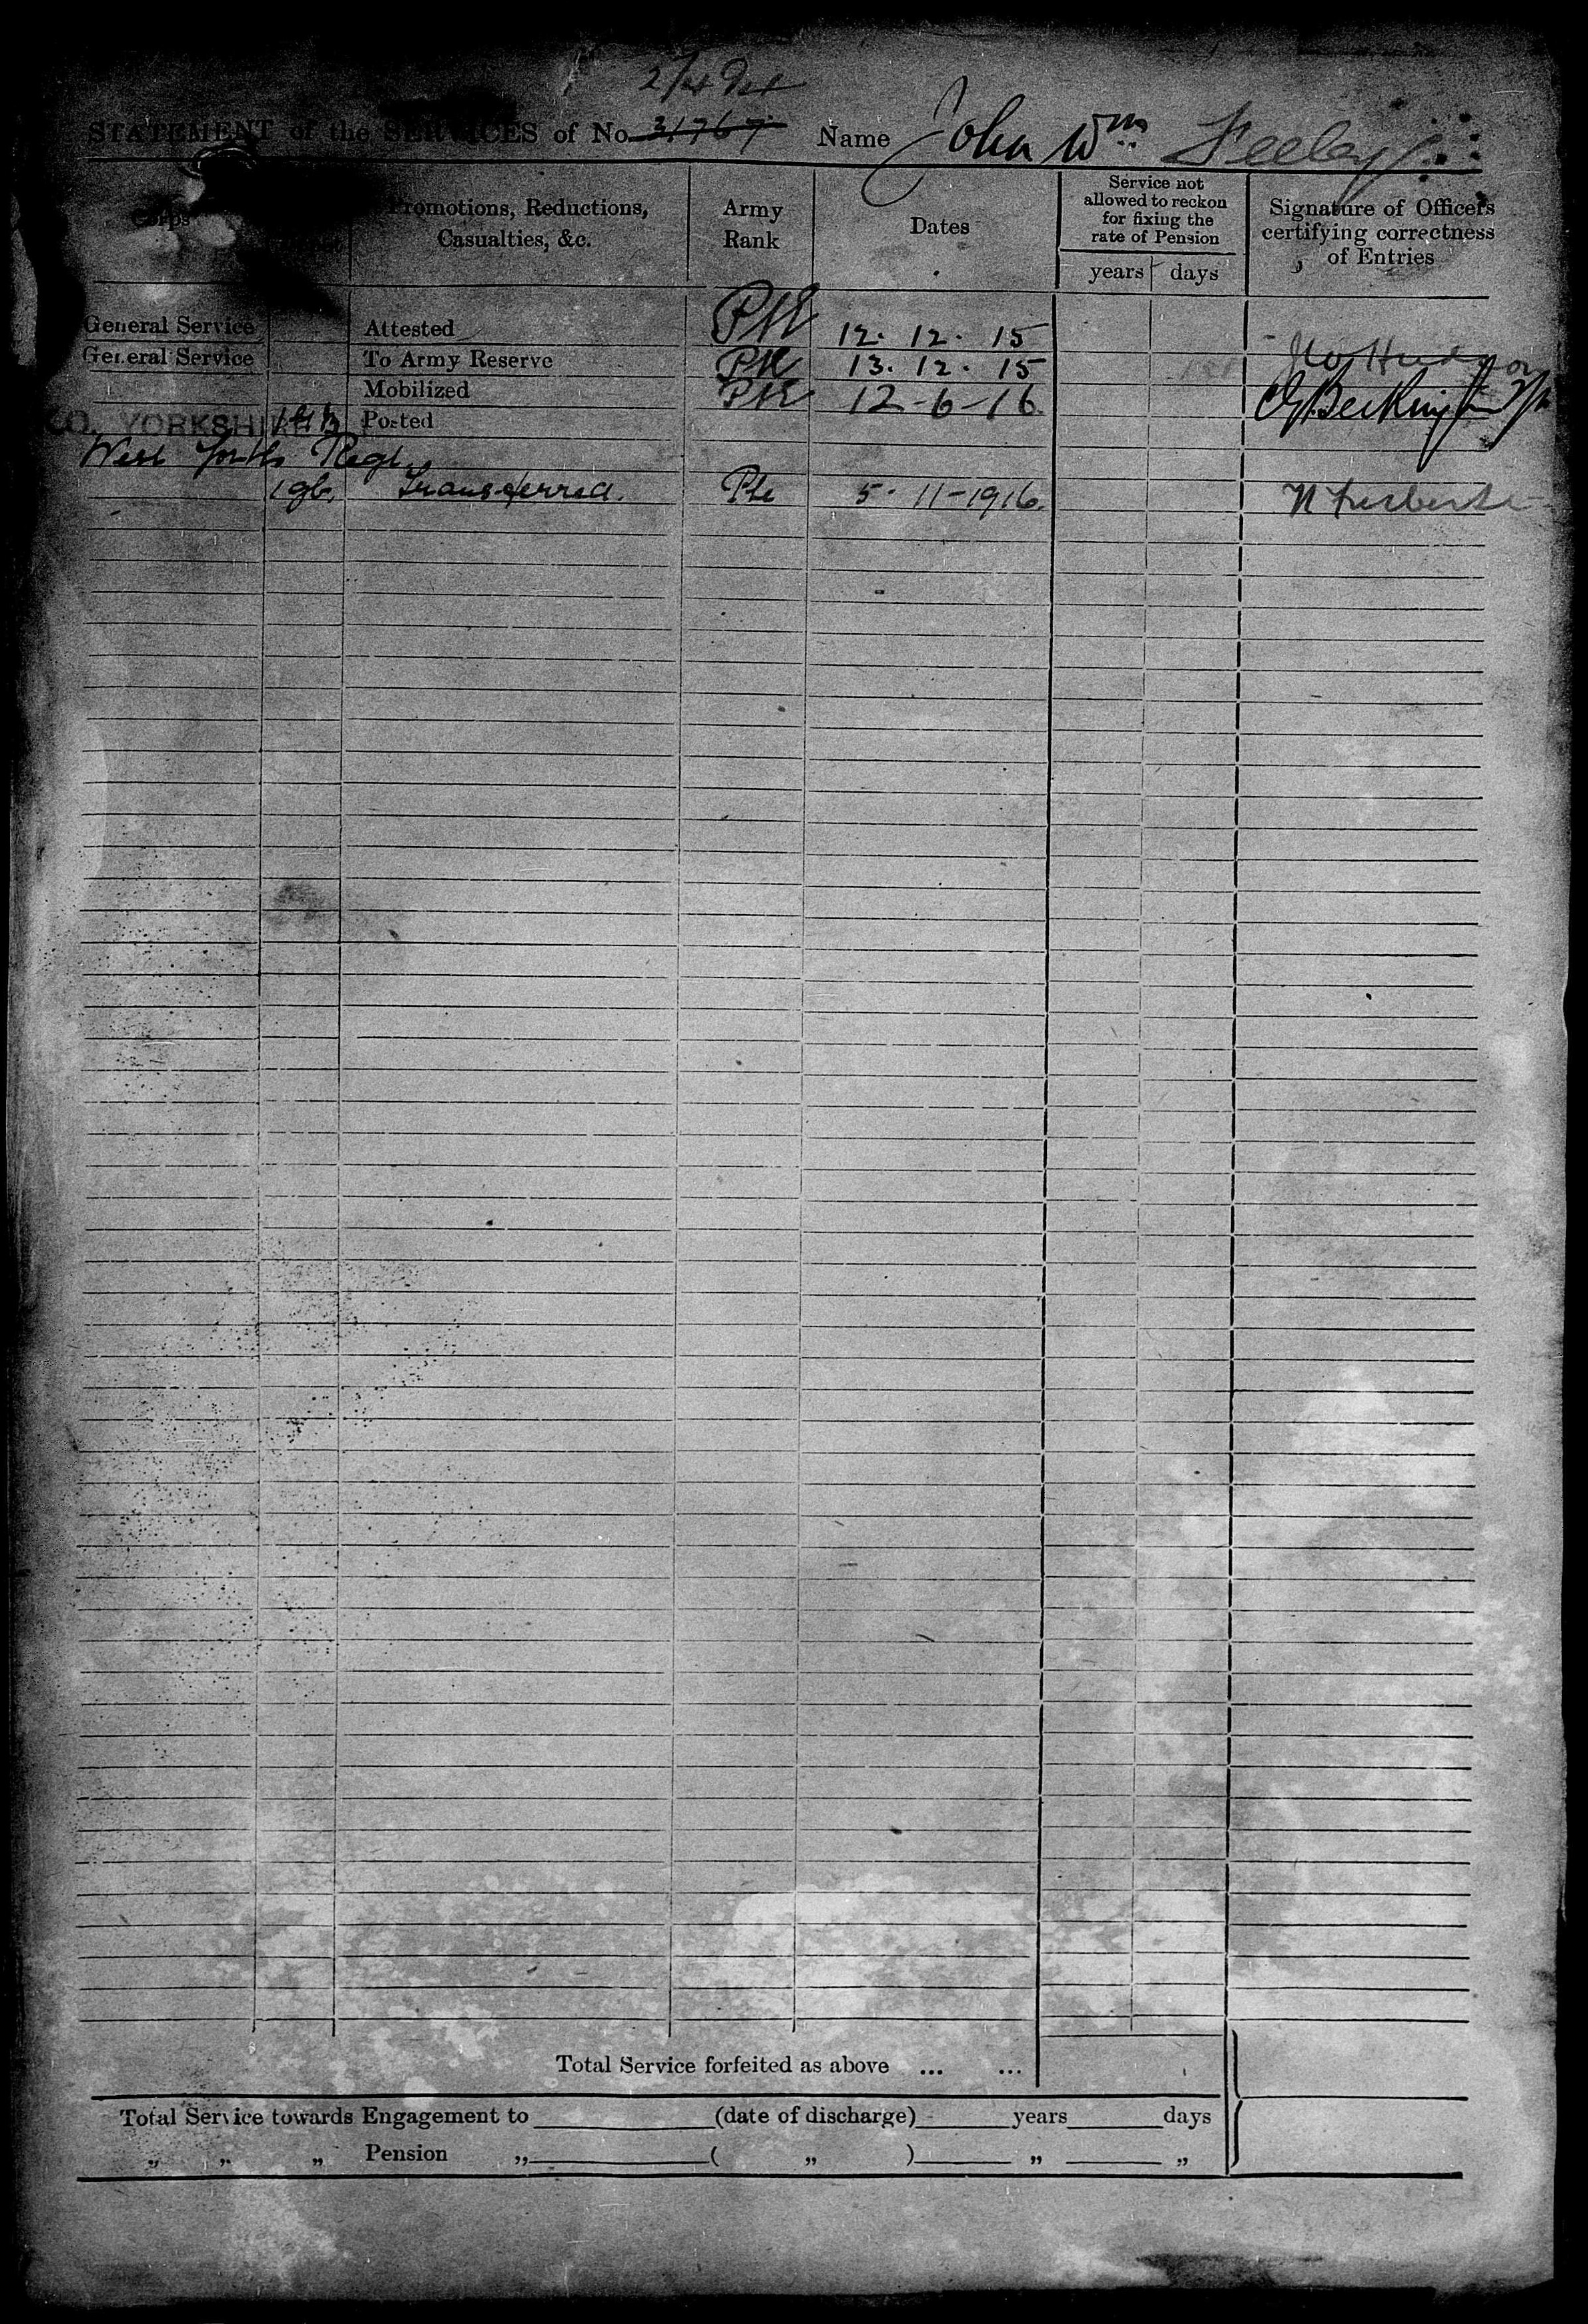 STATEMENT of the SERVICES of No. 31767 Name John Wm Feeley
Corps
Promotions, Reductions, Casualties, &c.
Army Rank
Dates
Service not allowed to reckon for fixing the rate of Pension
years days
Signature of Officers certifying correctness of Entries
General Service Attested Pte 12. 12. 15
General Service To Army Reserve Pte 13. 12. 15
Mobilized Pte 12-6-16
YORKSHIRE Posted
West Yorks Regt.
Transferred. Pte 5-11-1916.
Total Service forfeited as above ... ...
Total Service towards Engagement to (date of discharge) years days
„ „ „ Pension „ ( „ ) „ „